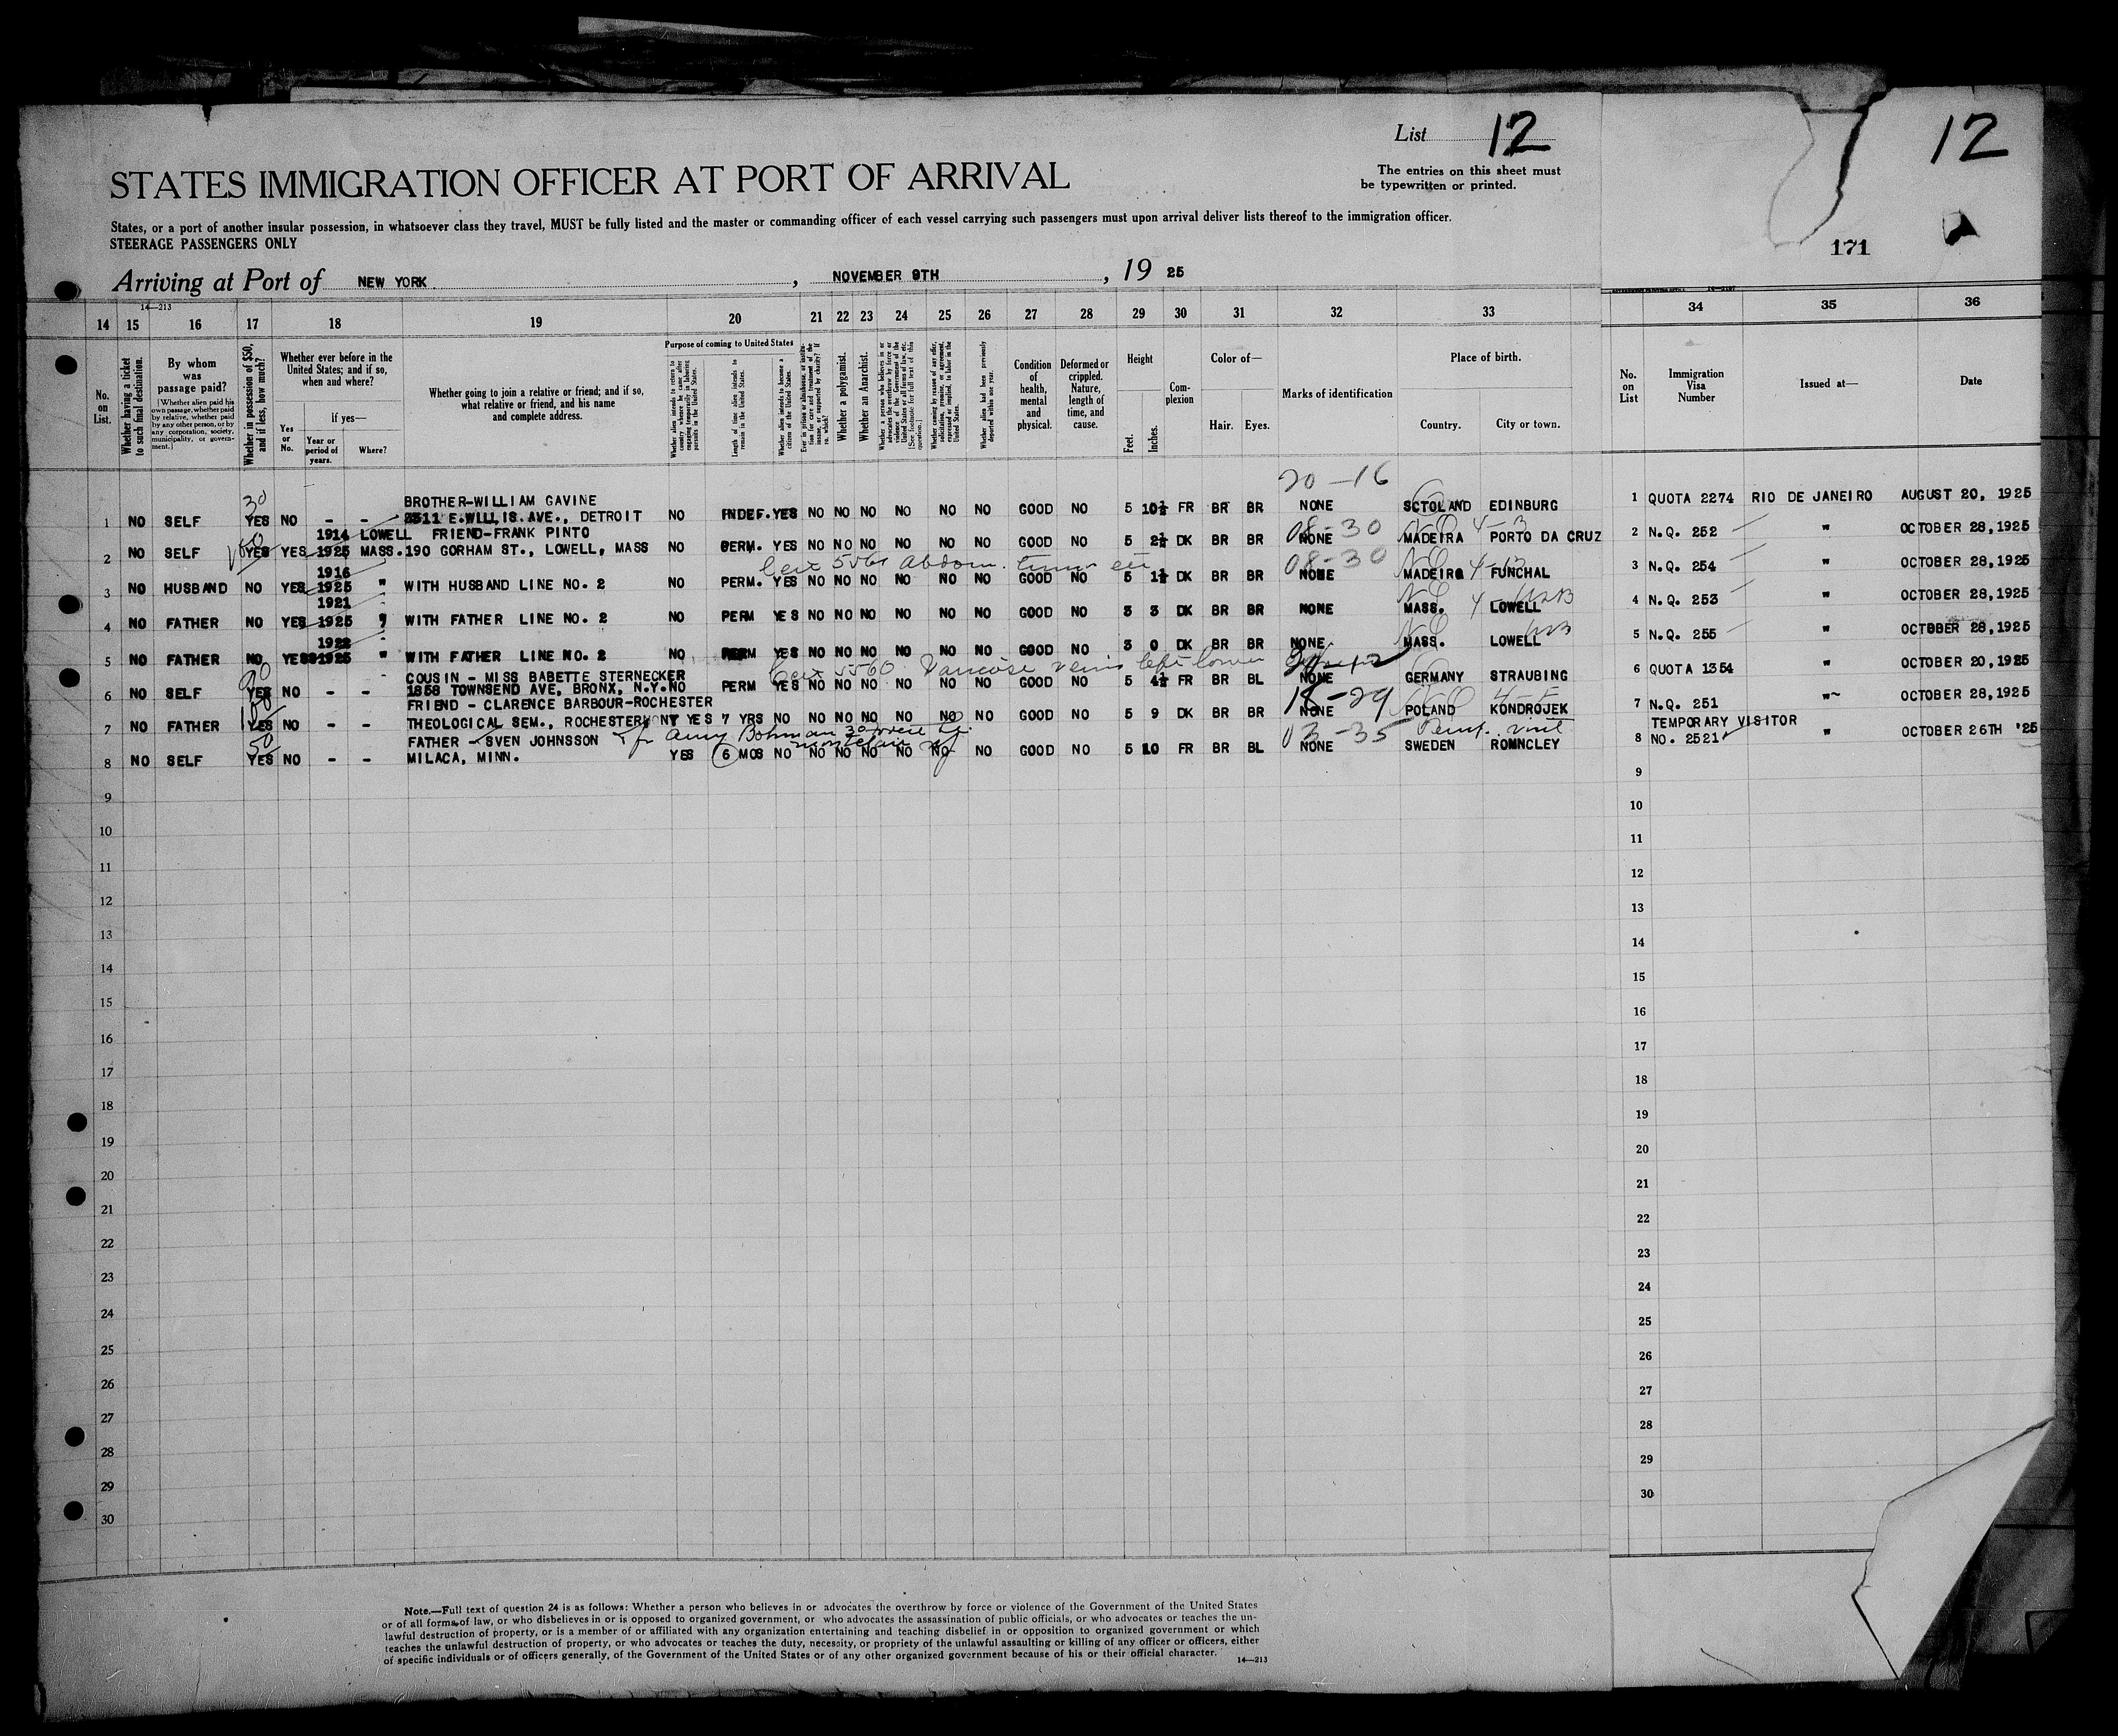 List 12
12
The entries on this sheet must
be typewritten or printed.
STATES IMMIGRATION OFFICER AT PORT OF ARRIVAL
States, or a port of another insular possession, in whatsoever class they travel, MUST be fully listed and the master or commanding officer of each vessel carrying such passengers must upon arrival deliver lists thereof to the immigration officer.
STEERAGE PASSENGERS ONLY
171
Arriving at Port of NEW YORK, NOVEMBER 9TH, 19 25
14—213
14 15 16 17 18 19 20 21 22 23 24 25 26 27 28 29 30 31 32 33 34 35 36
No. on List.
Whether having a ticket to such final destination.
By whom was passage paid?
[Whether alien paid his own passage, whether paid by relative, whether paid by any other person, or by any corporation, society, municipality, or government.]
Whether in possession of $50, and if less, how much?
Whether ever before in the United States; and if so, when and where?
Yes or No.
if yes—
Year or period of years.
Where?
Whether going to join a relative or friend; and if so, what relative or friend, and his name and complete address.
Purpose of coming to United States
Length of time alien intends to remain in the United States.
Whether alien intends to become a citizen of the United States.
Whether a polygamist.
Whether an Anarchist.
Whether alien had been previously deported within one year.
Condition of health, mental and physical.
Deformed or crippled. Nature, length of time, and cause.
Height
Feet. Inches.
Complexion
Color of—
Hair. Eyes.
Marks of identification
Place of birth.
Country. City or town.
No. on List
Immigration Visa Number
Issued at—
Date
20-16
30
BROTHER-WILLIAM GAVINE
1 NO SELF YES NO - - 2311 E.WILLIS.AVE., DETROIT NO INDEF. YES NO NO NO NO NO NO GOOD NO 5 10½ FR BR BR NONE SCTOLAND EDINBURG 1 QUOTA 2274 RIO DE JANEIRO AUGUST 20, 1925
1914 LOWELL FRIEND-FRANK PINTO 08-30
2 NO SELF YES YES 1925 MASS. 190 GORHAM ST., LOWELL, MASS NO PERM. YES NO NO NO NO NO NO GOOD NO 5 2½ DK BR BR NONE MADEIRA PORTO DA CRUZ 2 N.Q. 252 " OCTOBER 28,1925
1916 08-30
3 NO HUSBAND NO YES 1925 " WITH HUSBAND LINE NO. 2 NO PERM. YES NO NO NO NO NO NO GOOD NO 5 1½ DK BR BR NONE MADEIRA FUNCHAL 3 N.Q. 254 " OCTOBER 28,1925
1921
4 NO FATHER NO YES 1925 " WITH FATHER LINE NO. 2 NO PERM YES NO NO NO NO NO NO GOOD NO 3 3 DK BR BR NONE MASS. LOWELL 4 N.Q. 253 " OCTOBER 28,1925
1922
5 NO FATHER NO YES 1925 " WITH FATHER LINE NO. 2 NO PERM YES NO NO NO NO NO NO GOOD NO 3 0 DK BR BR NONE MASS. LOWELL 5 N.Q. 255 " OCTOBER 28,1925
5560 Varicose veins left lower
COUSIN - MISS BABETTE STERNECKER
6 NO SELF YES NO - - 1858 TOWNSEND AVE, BRONX, N.Y. NO PERM YES NO NO NO NO NO NO GOOD NO 5 4½ FR BR BL NONE GERMANY STRAUBING 6 QUOTA 1354 " OCTOBER 20,1925
FRIEND - CLARENCE BARBOUR-ROCHESTER 18-29
7 NO FATHER YES NO - - THEOLOGICAL SEM., ROCHESTER YES 7 YRS NO NO NO NO NO NO NO GOOD NO 5 9 DK BR BR NONE POLAND KONDROJEK 7 N.Q. 251 " OCTOBER 28,1925
50 FATHER - SVEN JOHNSSON 03-35 Temp. visit TEMPORARY VISITOR
8 NO SELF YES NO - - MILACA, MINN. YES 6 MOS NO NO NO NO NO NO NO GOOD NO 5 10 FR BR BL NONE SWEDEN ROMNCLEY 8 NO. 2521 " OCTOBER 26TH '25
9 9
10 10
11 11
12 12
13 13
14 14
15 15
16 16
17 17
18 18
19 19
20 20
21 21
22 22
23 23
24 24
25 25
26 26
27 27
28 28
29 29
30 30
Note.—Full text of question 24 is as follows: Whether a person who believes in or advocates the overthrow by force or violence of the Government of the United States
or of all forms of law, or who disbelieves in or is opposed to organized government, or who advocates the assassination of public officials, or who advocates or teaches the un-
lawful destruction of property, or is a member of or affiliated with any organization entertaining and teaching disbelief in or opposition to organized government or which
teaches the unlawful destruction of property, or who advocates or teaches the duty, necessity, or propriety of the unlawful assaulting or killing of any officer or officers, either
of specific individuals or of officers generally, of the Government of the United States or of any other organized government because of his or their official character.
14—213